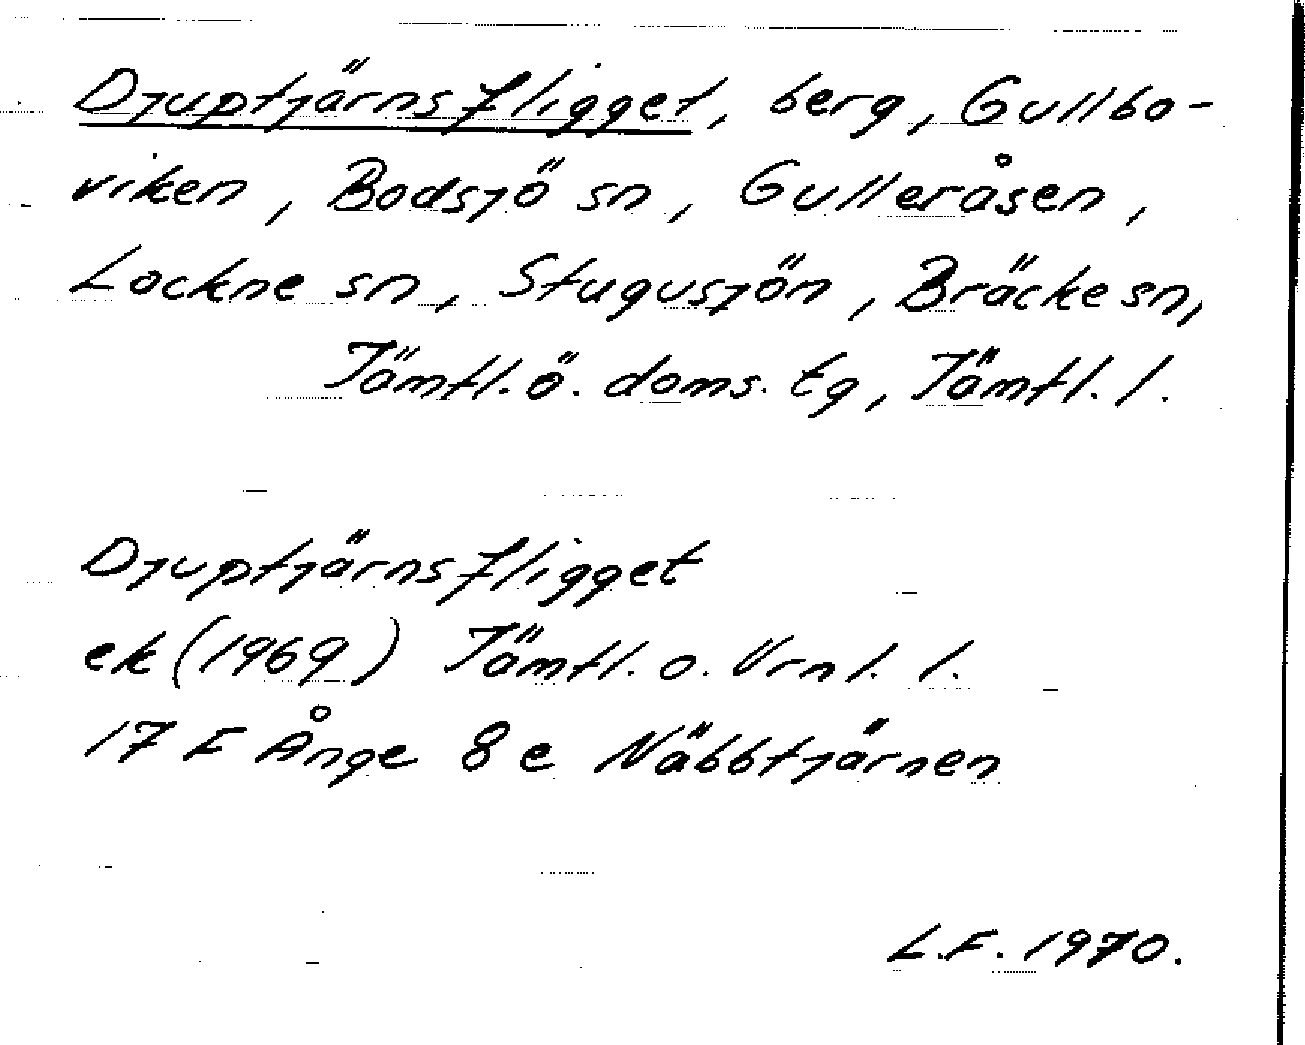 Djuptjärnsfligget, berg, Gullbo-
viken, Bodsjö sn, Gulleråsen,
Lockne sn, Stugusjön, Bräcke sn,
Jämtl. ö. doms. tg, Jämtl. l.
Djuptjärnsfligget
ek (1969) Jämtl. o. Vrnl. l.
17 F Ånge 8 e Näbbtjärnen
L.F. 1970.